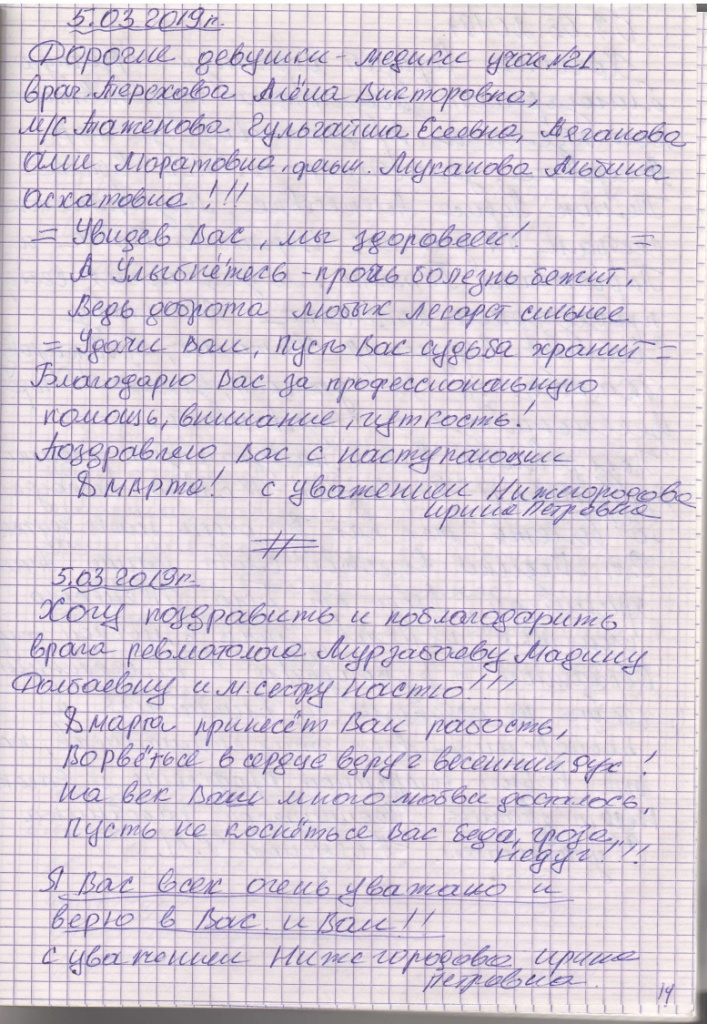 5.03 2019г.
Дорогие девушки - медики участ №21.
врач. Терехова Алёна Викторовна,
м/с Таженова Гульгайша Есеевна, Аяганова
Али Моратовна, фельш. Муканова Альбина
Асхатовна!!!
= Увидев Вас, мы здоровеем! =
А Улыбнётесь - прочь болезнь бежит,
Ведь доброта любых лекарст сильнее.
= Удачи Вам, пусть Вас судьба хранит =
Благодарю Вас за профессиональную
помощь, внимание, чуткость!
Поздравляю Вас с наступающим
8 марта! С уважением Нижегородова
Ирина Петровна
5.03 2019г.
Хочу поздравить и поблагодарить
врача ревматолога Мурзабаеву Мадину
и м. сестру Настю!!!
8 марта принесёт Вам радость,
Ворвётьсе в сердце вдруг весенний дух!
На век Ваш много любви досталось,
Пусть не коснётьсе Вас беда, гроза,
недуг!!!
Я Вас всех очень уважаю и
верю в Вас и Вам!!
С уважением Нижегородова Ирина
Петровна.
14